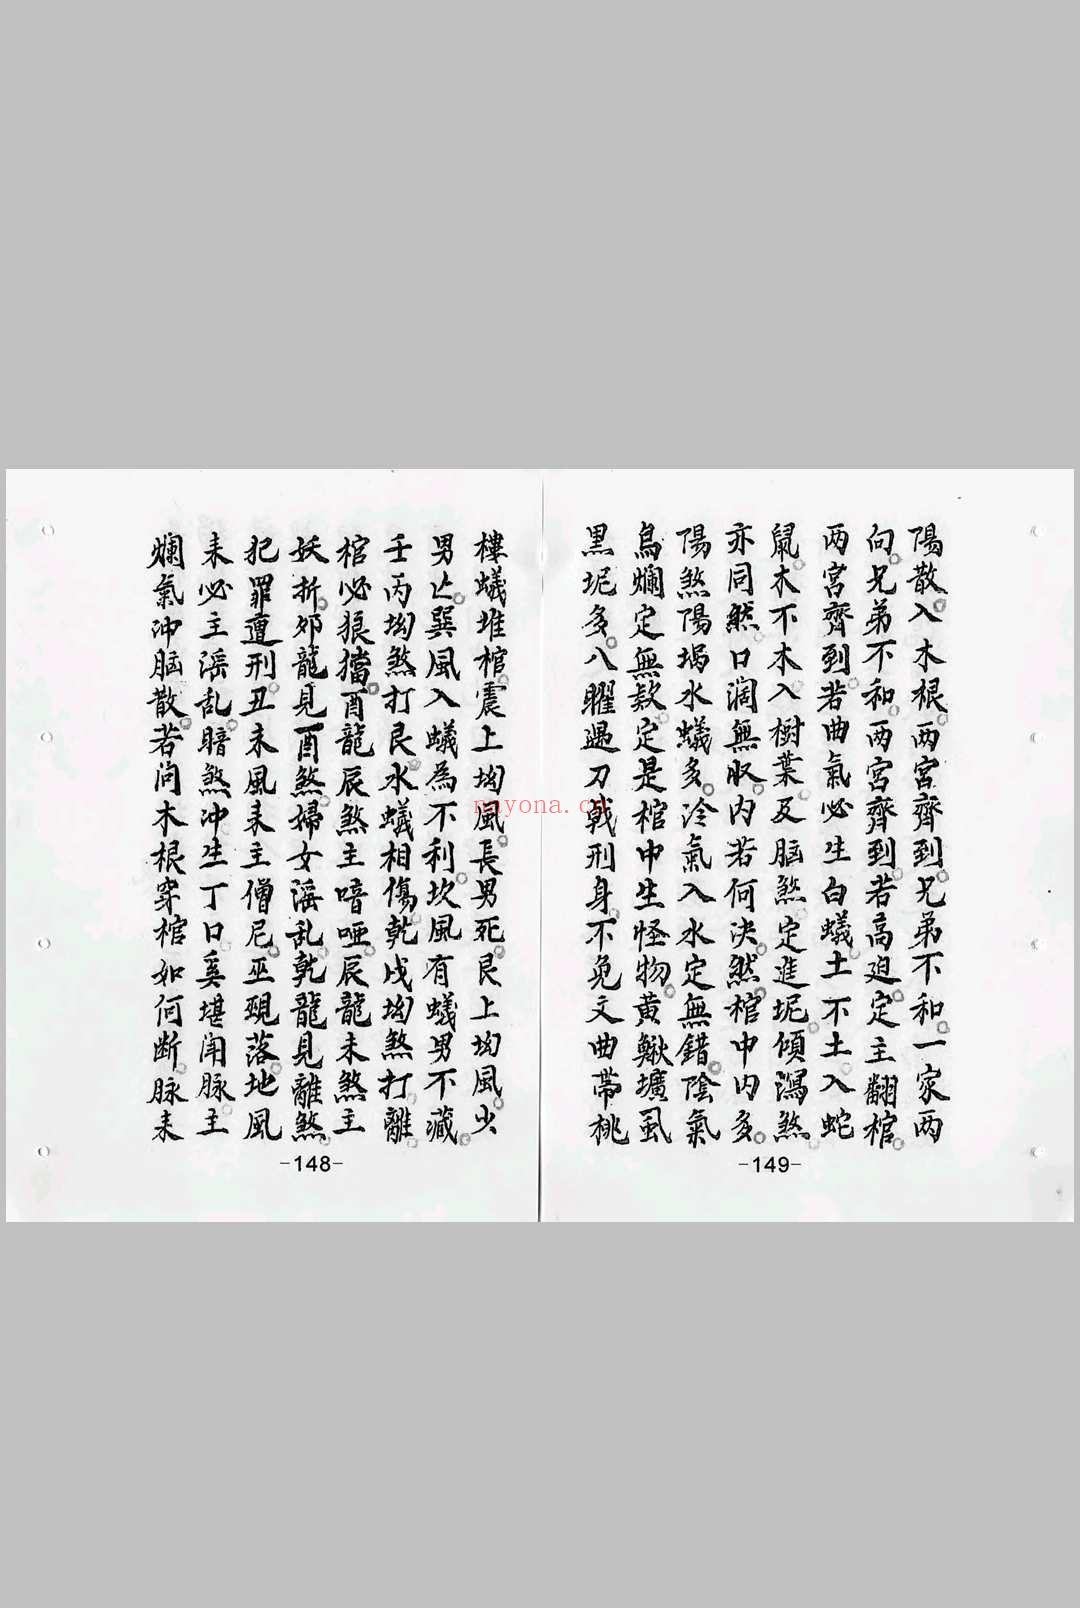 樓蟻堆棺。震上坳風。長男死。艮上坳風。少
男亡。巽風入蟻為不利。坎風有蟻男不藏。
壬丙坳煞打艮水。蟻相傷。乾戌坳煞打離。
棺必狼擋。酉龍辰煞主喑啞。辰龍未煞主
妖折。夘龍見酉煞。婦女滛乱。乾龍見離煞。
犯罪遭刑。丑未風耒主僧尼。巫覡落地風
耒必主滛乱。暗煞冲生丁口奚堪。闱脉主
爛氣冲脳散。若问木根穿棺如何断。脉耒
-148-
陽散。入木根。两宫齊到。兄弟不和。一家两
向。兄弟不和。两宫齊到。若高廹。定主翻棺。
两宫齊到。若曲氣必生白蟻。土不土入蛇
鼠。木不木入樹葉及脳煞定進坭。傾瀉煞
亦同然。口濶無収。内若何决。然棺中内多。
陽煞陽塲水蟻多。冷氣入水定無錯。陰氣
鳥爛定無欵。定是棺中生怪物。黄鰍壙虱
黒坭多。八曜遇刀戟刑身。不免文曲帶桃
-149-
nayona.cn